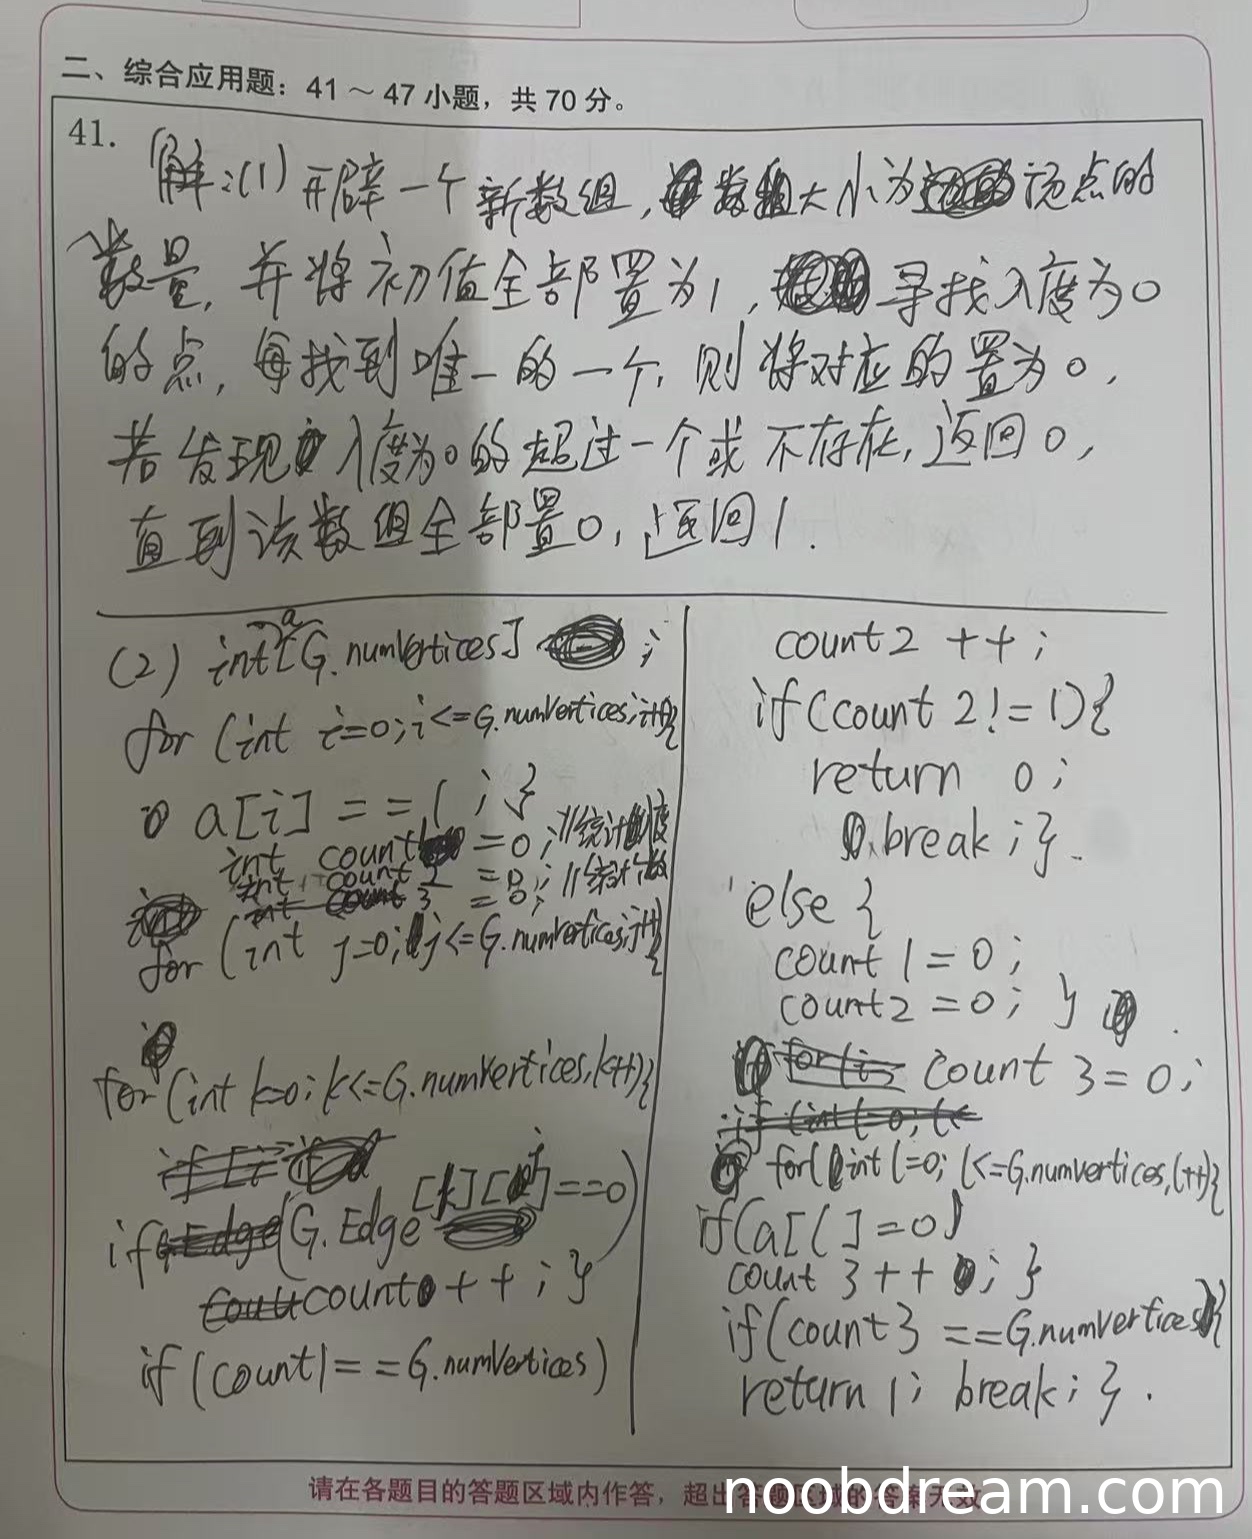 二、综合应用题：41～47小题，共70分。
41.
解:(1)开辟一个新数组,数组大小为顶点的
数量,并将初值全部置为1,寻找入度为0
的点,每找到唯一的一个,则将对应的置为0,
若发现入度为0的超过一个或不存在,返回0,
直到该数组全部置0,返回1.
(2) int a[G.numVertices];
for (int i=0;i<=G.numVertices;i++){
a[i]==1;}
int count1=0;//统计入度
int count2=0;//统计个数
for (int j=0;j<=G.numVertices;j++){
for (int k=0;k<=G.numVertices,k++){
if(G.Edge[k][j]==0)
count++;}
if(count1==G.numVertices)
count2++;
if(count2!=1){
return 0;
break;}
else{
count1=0;
count2=0;}
count3=0;
for(int l=0;l<=G.numVertices,l++){
if(a[l]=0)
count3++;}
if(count3==G.numVertices){
return 1;break;}.
请在各题目的答题区域内作答，超出答题区域的答案无效
noobdream.com